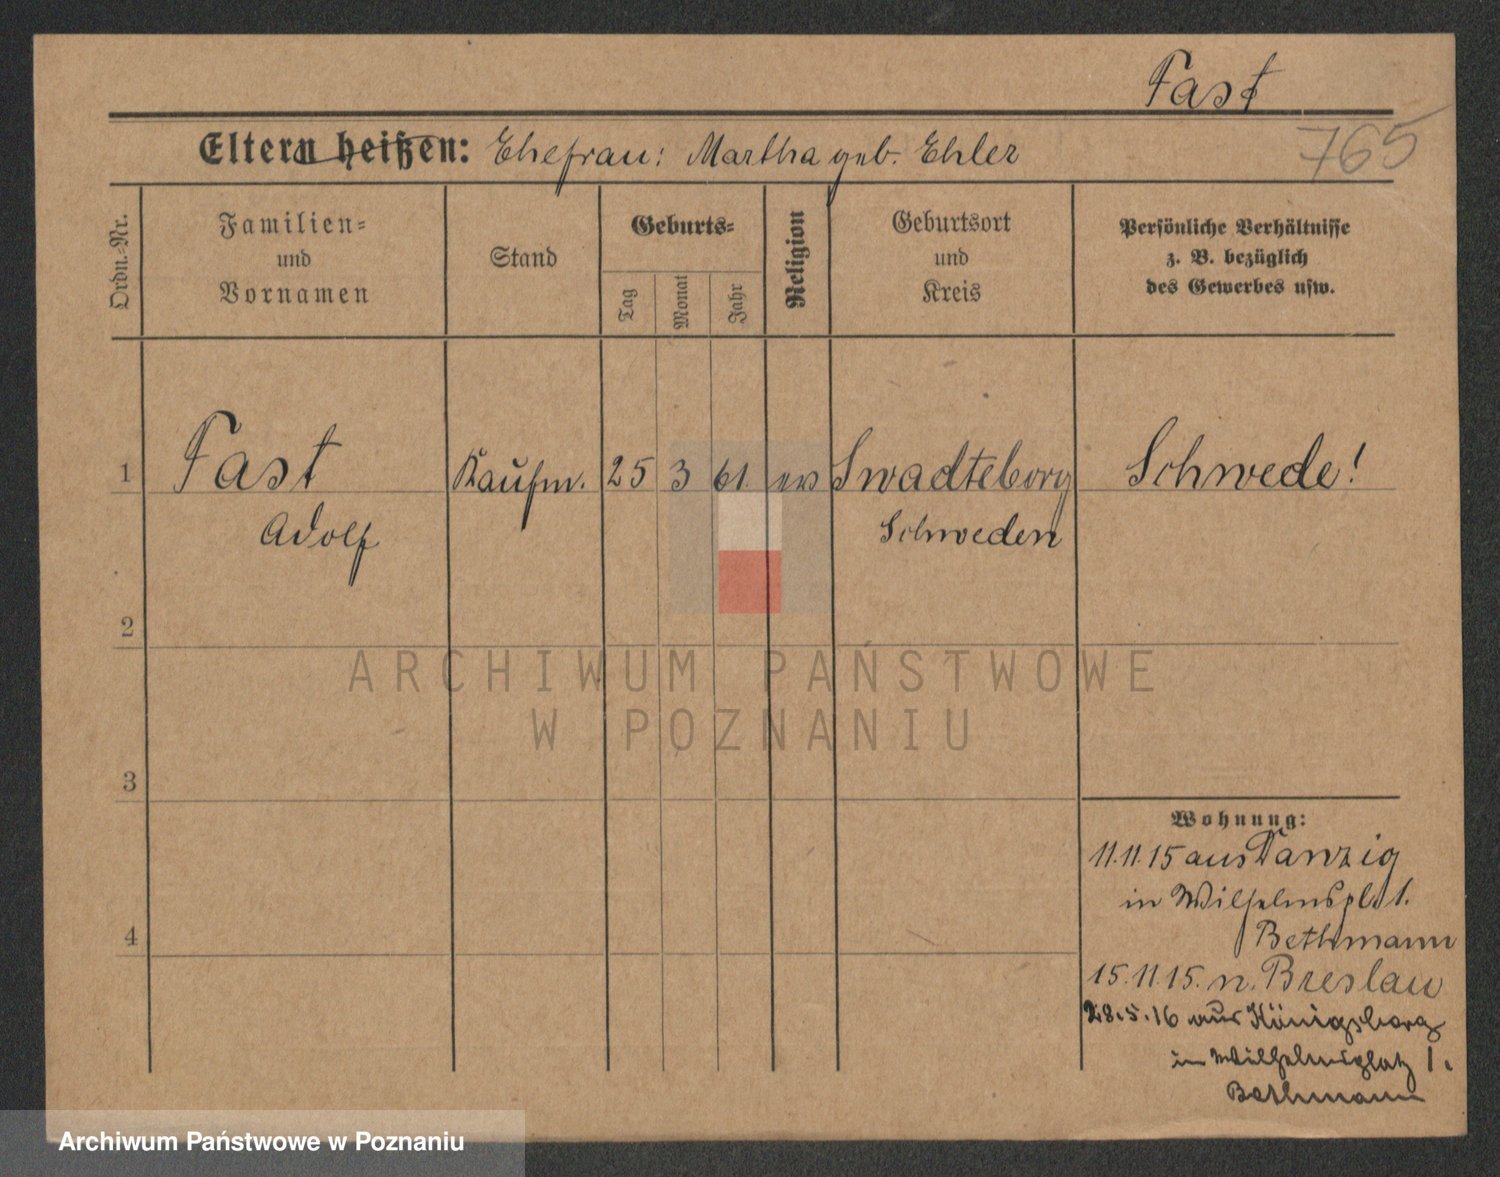 Fast
765
Eltern heißen: Ehefrau: Martha geb. Ehler
Ordn.-Nr.
Familien-
und
Vornamen
Stand
Geburts-
Tag
Monat
Jahr
Religion
Geburtsort
und
Kreis
Persönliche Verhältnisse
z. B. bezüglich
des Gewerbes usw.
1 Fast Kaufm. 25 3 61. Swadteborg Schwede!
Adolf Schweden
2
3
4
Wohnung:
11.11.15 aus Danzig
in Wilhelmspl. 1.
Bethmann
15.11.15. n. Breslau
28.5.16 aus Königsberg
in Wilhelmsplatz 1.
Bethmann
ARCHIWUM PAŃSTWOWE
W POZNANIU
Archiwum Państwowe w Poznaniu